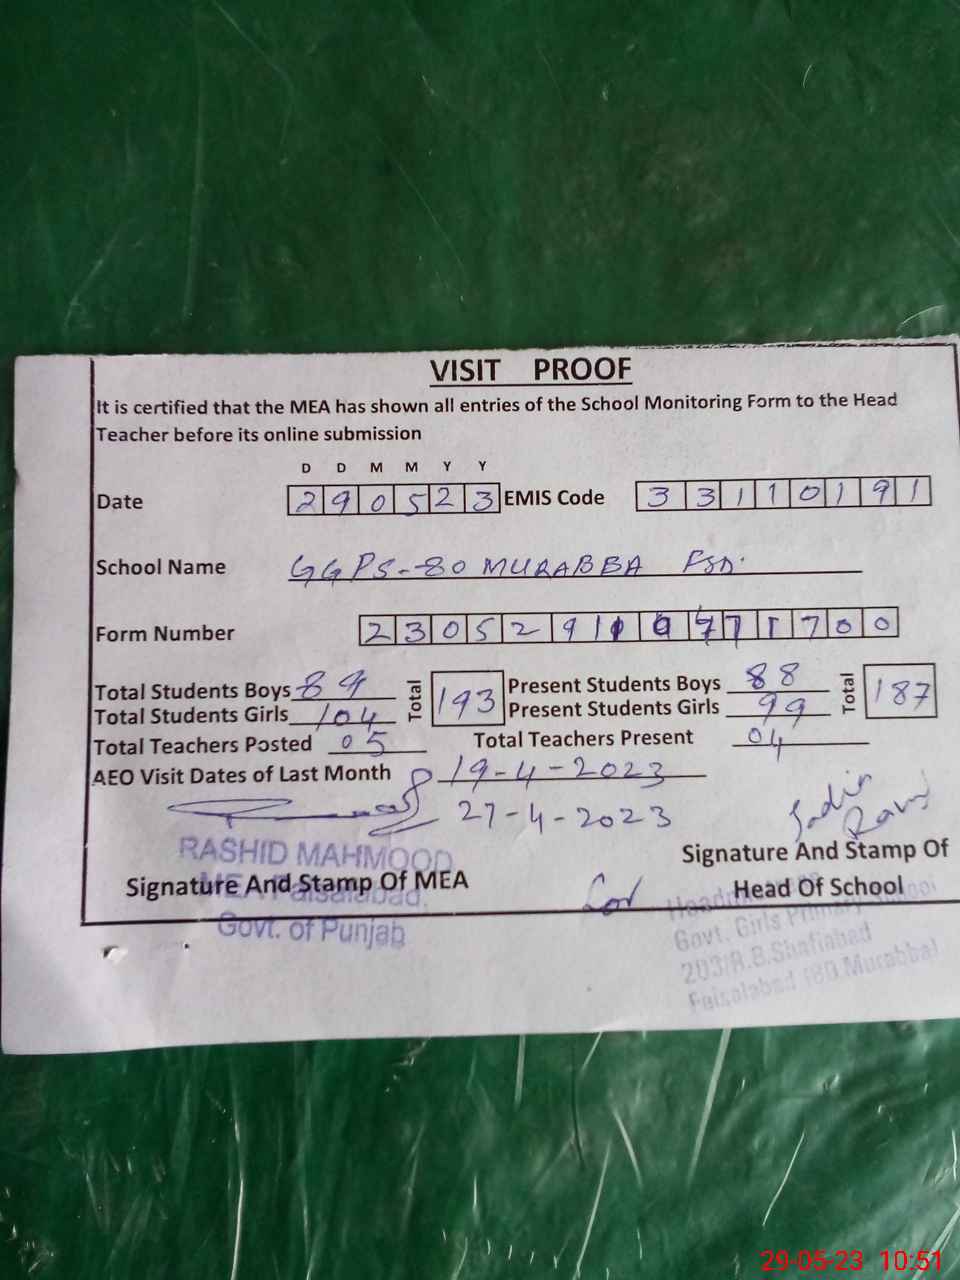 VISIT PROOF
It is certified that the MEA has shown all entries of the School Monitoring Form to the Head
Teacher before its online submission
D D M M Y Y
Date 290523 EMIS Code 33110191
School Name GGPS-80 MURABBA FSD.
Form Number
Total Students Boys 89 Total 193 Present Students Boys 88 Total 187
Total Students Girls 104 Present Students Girls 99
Total Teachers Posted 05 Total Teachers Present 04
AEO Visit Dates of Last Month 19-4-2023
27-4-2023
RASHID MAHMOOD
MEA Faisalabad.
Govt. of Punjab
Signature And Stamp Of MEA
Signature And Stamp Of
Head Of School
Headmistress
Govt. Girls Primary School
203/R.B.Shafiabad
Faisalabad (80.Murabba)
29-05-23 10:51